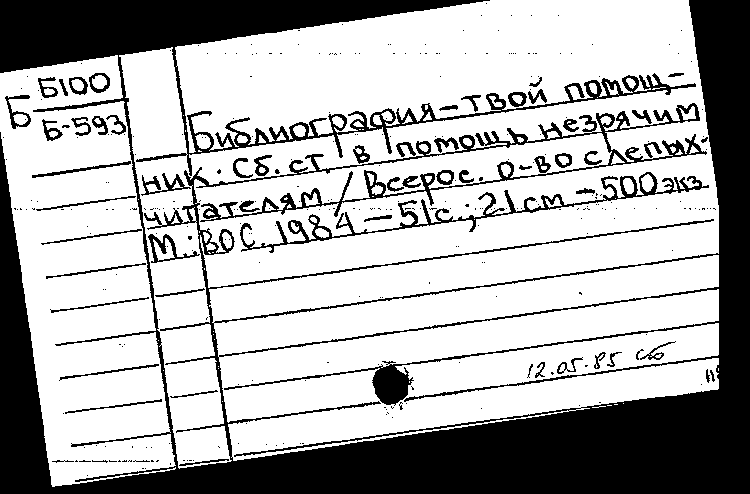 Б Б100
Б-593
Библиография – твой помощ-
ник: Сб. ст. в помощь незрячим
читателям / Всерос. о-во слепых.-
М.: ВОС, 1984. – 51с.; 21 cm – 500 экз
12.05.85 сб